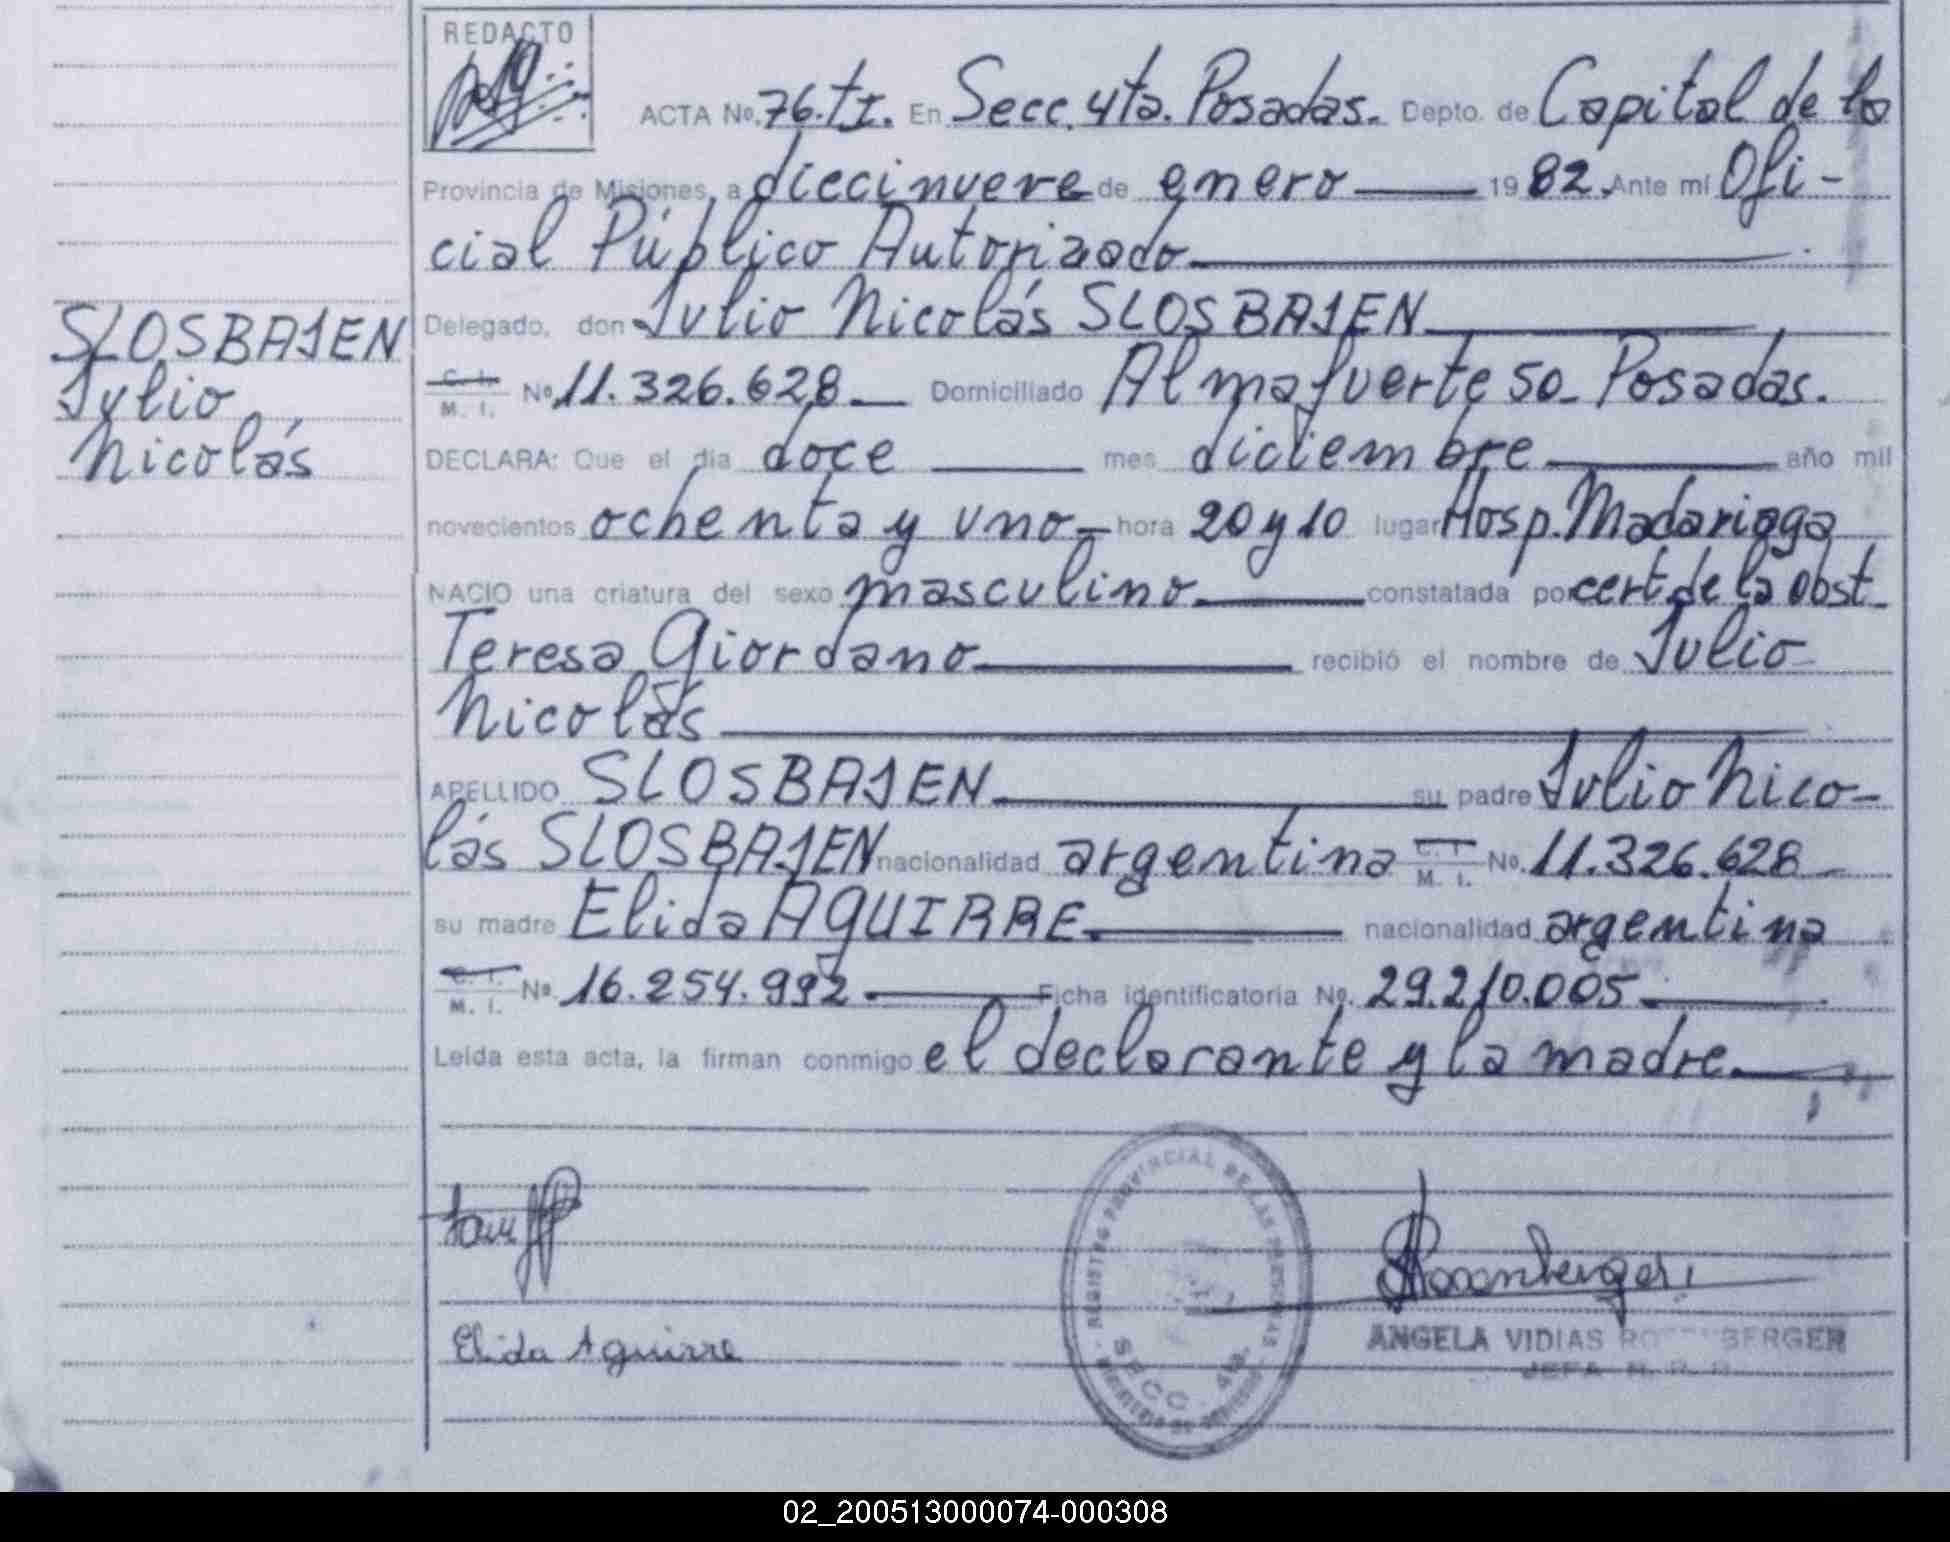 REDACTO
ACTA No. 76. tI. En Secc. 4ta. Posadas. Depto. de Capital de la
Provincia de Misiones, a diecinueve de enero 1982. Ante mí Ofi-
cial Público Autorizado
Delegado, don Julio Nicolás SLOSBAJEN
SLOSBAJEN
Julio
Nicolás
C. I. M. I. No. 11.326.628 Domiciliado Almafuerte 50_ Posadas.
DECLARA: Que el día doce mes diciembre año mil
novecientos ochenta y uno hora 20 y 10 lugar Hosp. Madariaga
NACIO una criatura del sexo masculino constatada por cert. de la obst.
Teresa Giordano recibió el nombre de Julio
Nicolás
APELLIDO SLOSBAJEN su padre Julio Nico-
lás SLOSBAJEN nacionalidad argentina C. I. M. I. No. 11.326.628
su madre Elida AGUIRRE nacionalidad argentina
C. I. M. I. No. 16.254.992 Ficha identificatoria No. 29.210.005
Leída esta acta, la firman conmigo el declarante y la madre.
Elida Aguirre
REGISTRO PROVINCIAL DE LAS PERSONAS
SECC. 4ta.
Rosenberger
ANGELA VIDIAS ROSENBERGER
JEFA
02_200513000074-000308